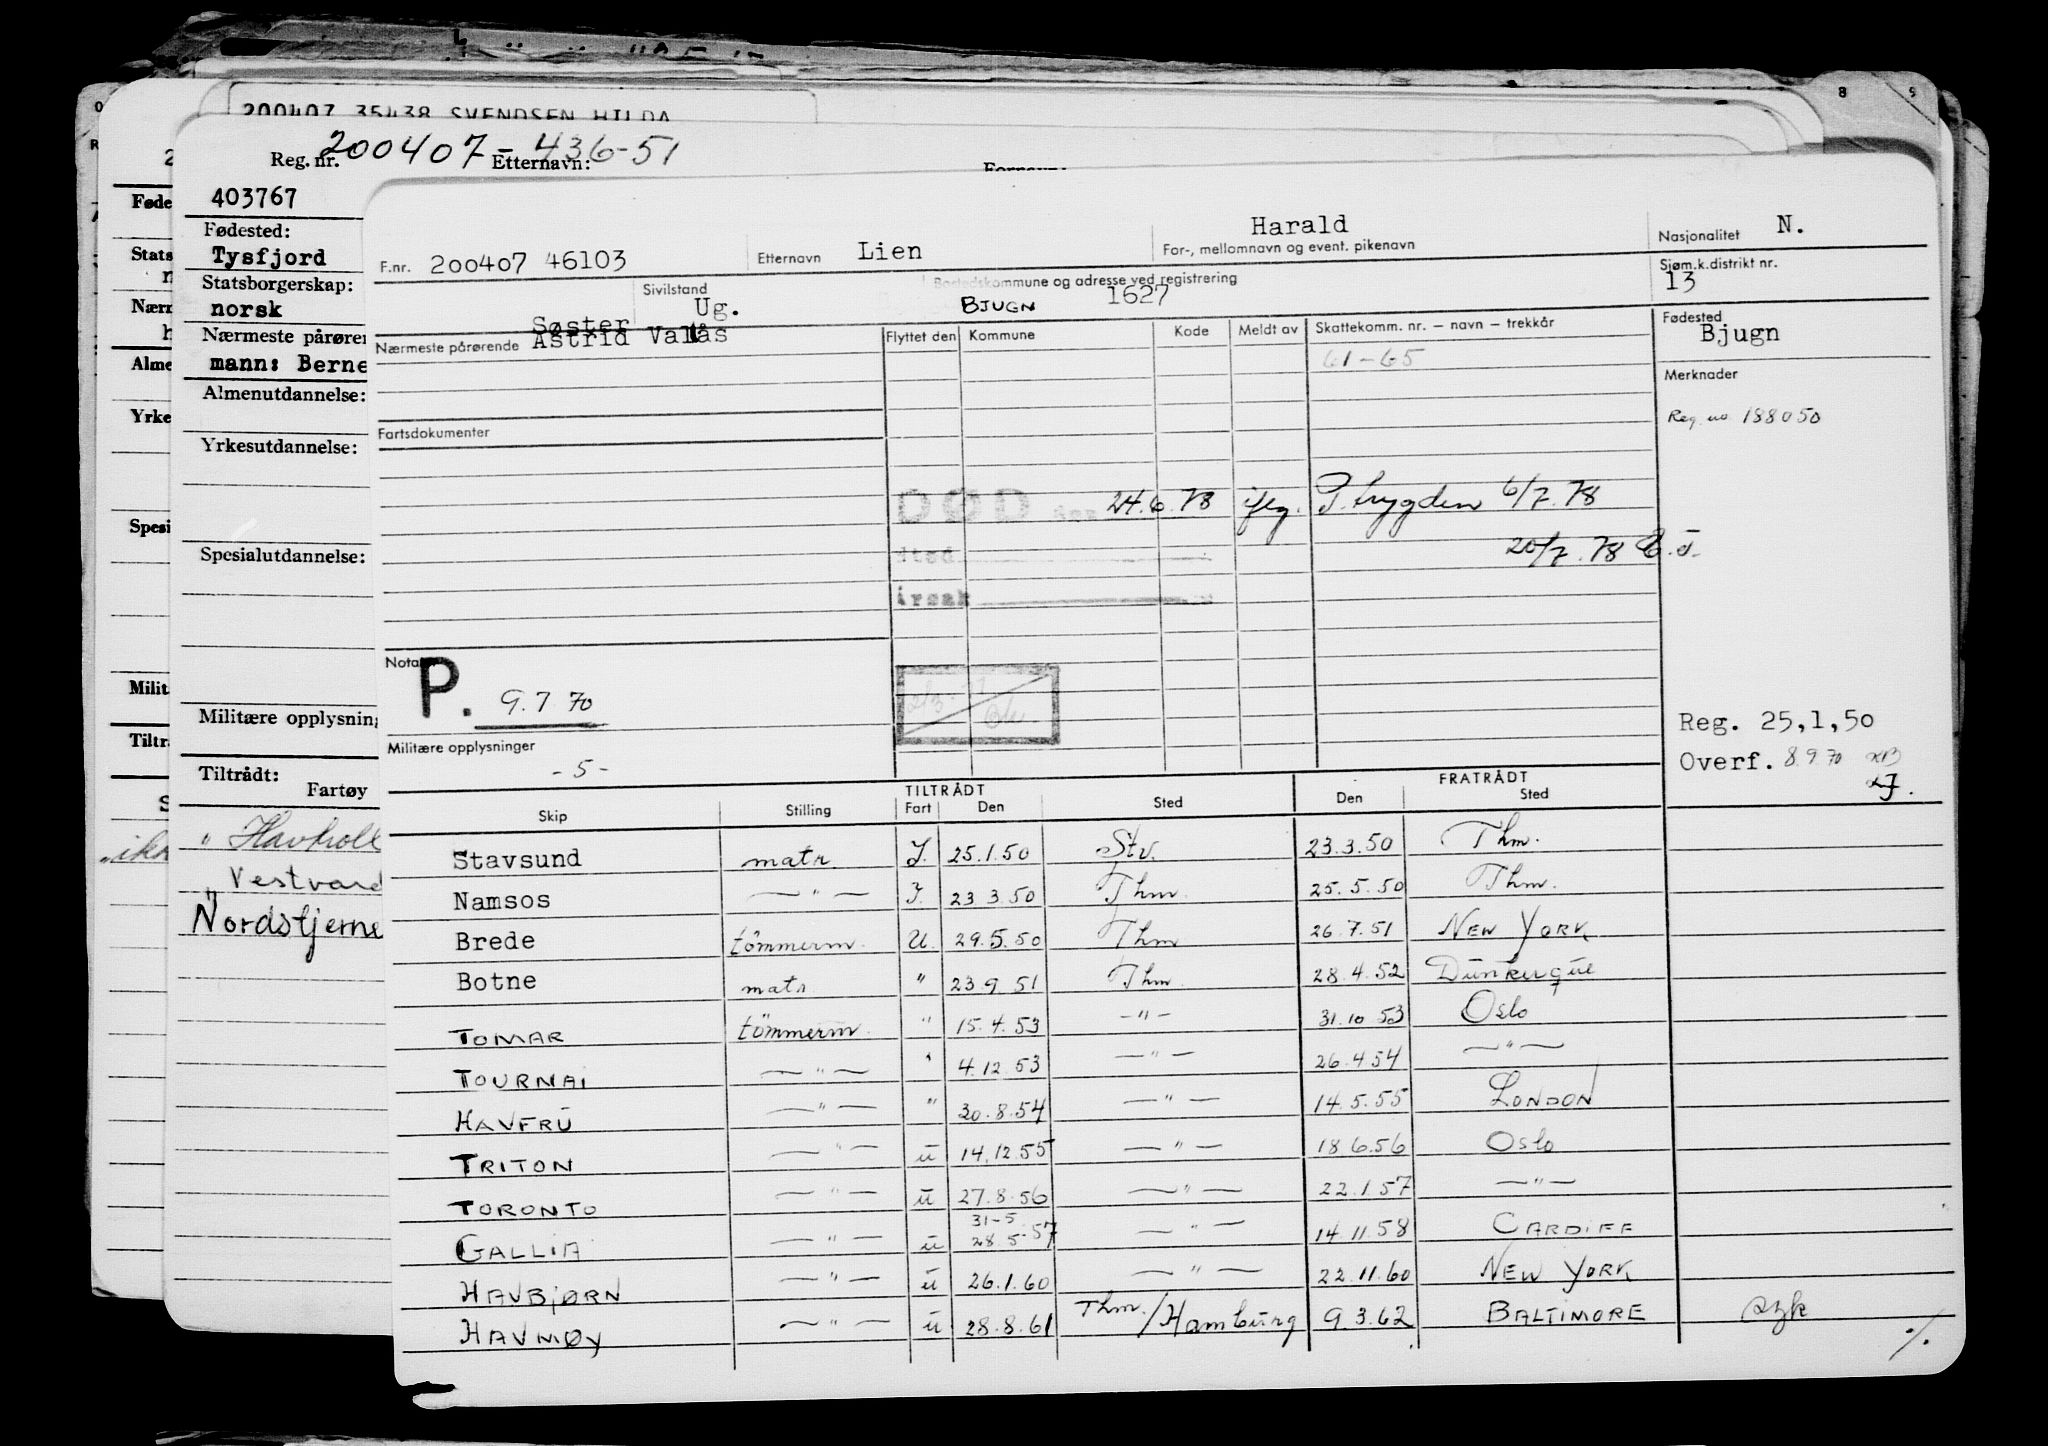 200407 35438 SVENDSEN HILDA
Reg. nr. 200407 - 436-51 Etternavn: Fornavn:
403767
Fødested:
Tysfjord
Statsborgerskap:
norsk
Nærmeste pårører
mann: Berne
Almenutdannelse:
Yrkesutdannelse:
Spesialutdannelse:
Militære opplysning
Tiltrådt:
Fartøy
" Havholt
Vestvard
" Nordstjerne
Føde
Stats
Nærr
Alme
Yrke
Spesi
Milit
Tiltr
F.nr. 200407 46103 Etternavn Lien Harald For-, mellomnavn og event. pikenavn Nasjonalitet N.
Sivilstand Ug. Bostedskommune og adresse ved registrering BJUGN 1627 Sjøm.k.distrikt nr. 13
Nærmeste pårørende Søster Astrid Valås Flyttet den Kommune Kode Meldt av Skattekomm. nr. – navn – trekkår Fødested Bjugn
61-65
Merknader
Reg. no 188050
Fartsdokumenter
DØD den 24.6.78 iflg. P. trygden 6/7.78
sted 20/7.78
årsak
Notater
P. 9.7 70
Militære opplysninger
-5-
Reg. 25,1,50
Overf. 8.9.70
TILTRÅDT FRATRÅDT
Skip Stilling Fart Den Sted Den Sted
Stavsund matr J. 25.1.50 Stv. 23.3.50 Thm.
Namsos —"— J. 23 3.50 Thm. 25.5.50 Thm.
Brede tömmerm. U. 29.5.50 Thm 26.7.51 NEW YORK
Botne matr. " 23 9 51 Thm. 28.4.52 Dunkerque
TOMAR tömmerm. " 15.4.53 -"- 31.10 53 Oslo
TOURNAI —"— " 4.12 53 —"— 26.4 54 —"—
HAVFRU —"— " 20.8.54 —"— 14.5.55 LONDON
TRITON —"— u 14.12.55 —"— 18 6.56 Oslo
TORONTO —"— u 27.8.56 —"— 22.1.57 —"—
31-5
GALLIA —"— u 28.5.57 —"— 14.11.58 CARDIFF
HAVBJØRN —"— u 26.1.60 —"— 22.11.60 NEW YORK
HAVMØY —"— u 28.8.61 Thm./Hamburg 9.3.62 BALTIMORE